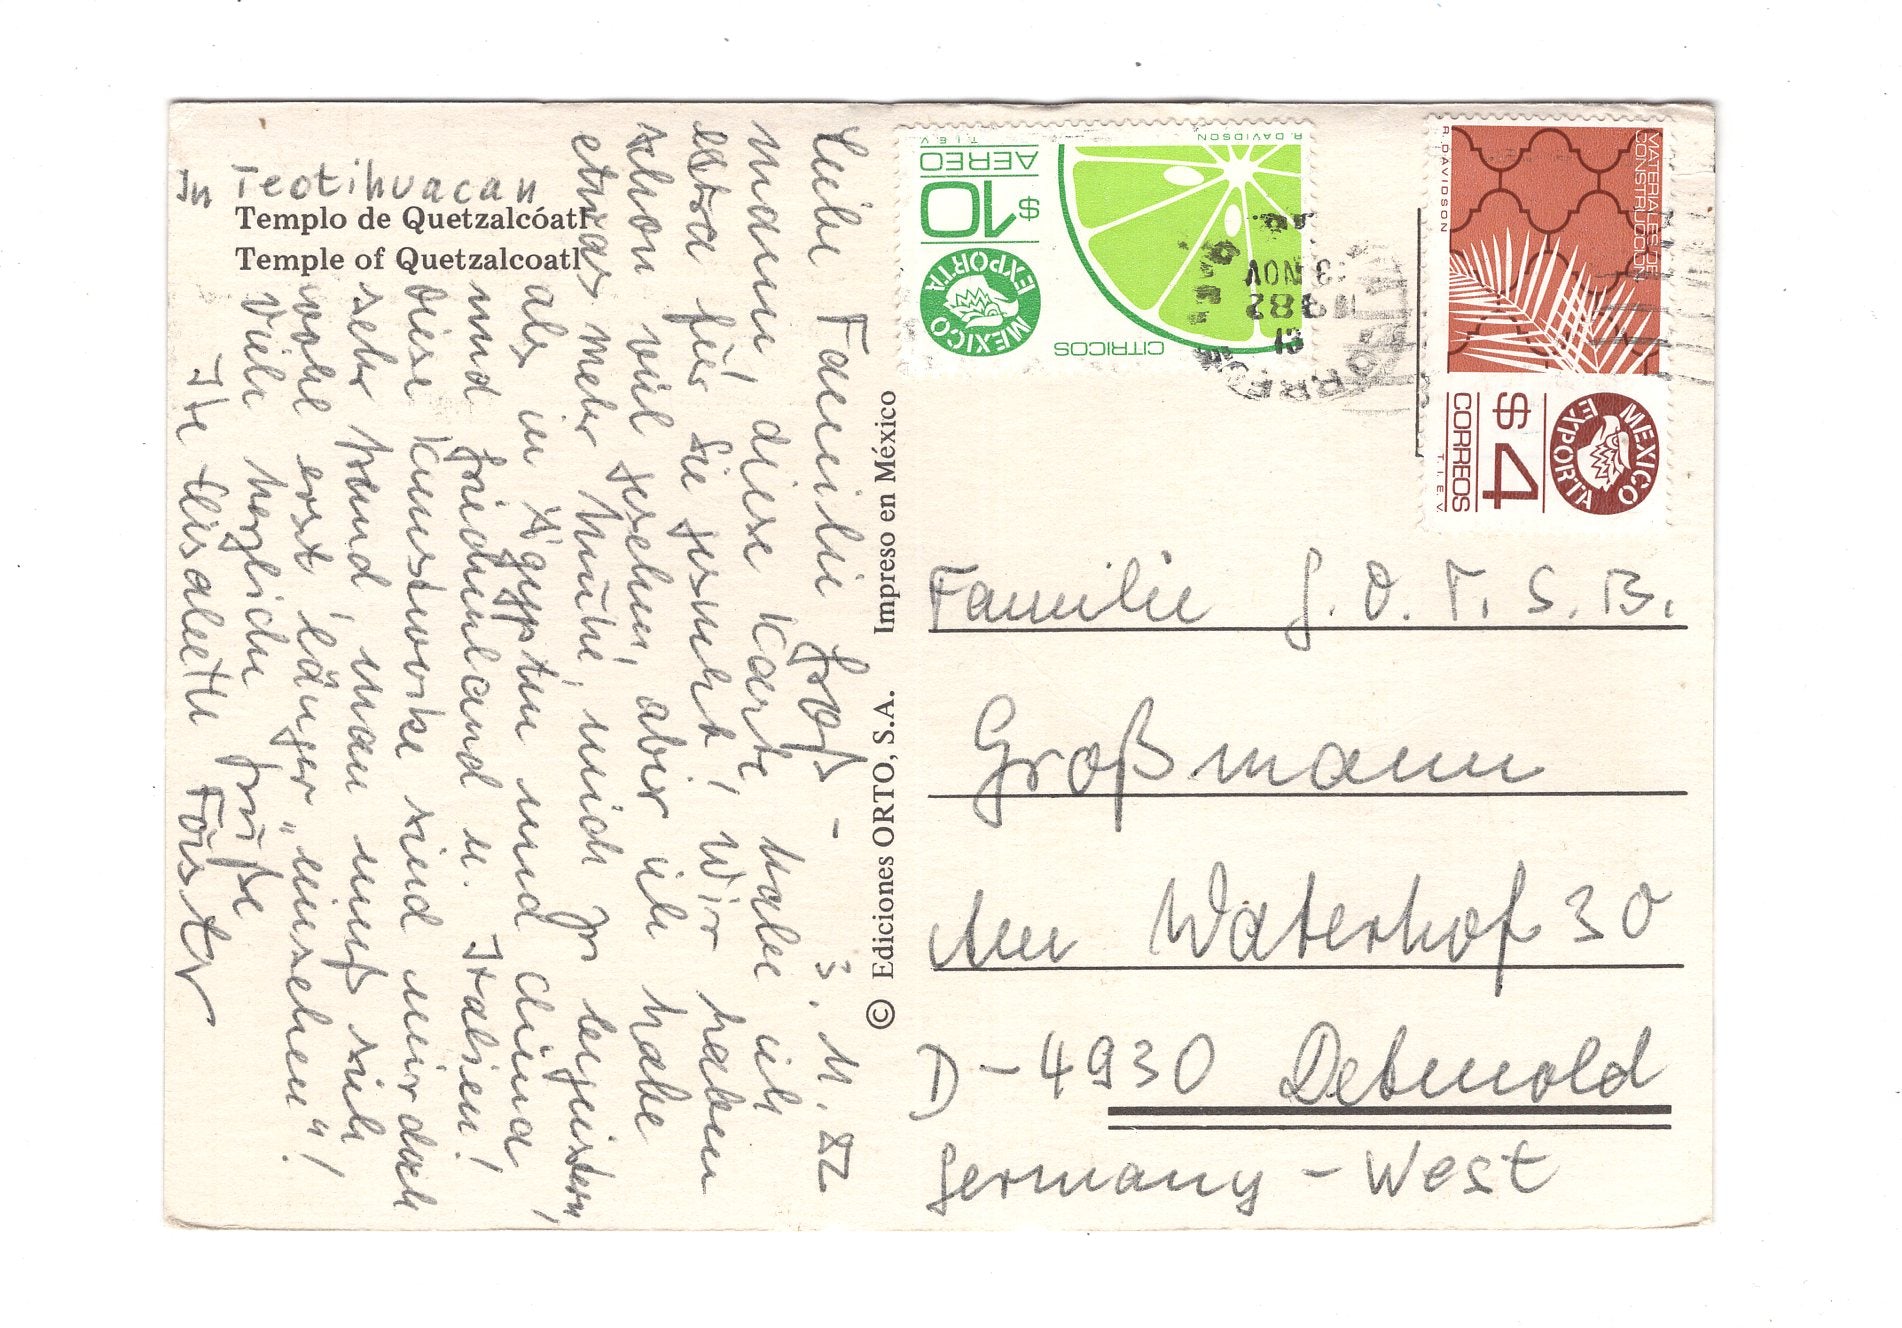 In Teotihuacan
Templo de Quetzalcóatl
Temple of Quetzalcoatl
Liebe Familie Groß- 3.11.82
mann, diese Karte habe ich
extra für Sie gesucht! Wir haben
schon viel gesehen, aber ich habe
etwas mehr Mühe, mich zu begeistern,
als in Ägypten und China
und Griechenland u. Italien!
Diese Kunstwerke sind mir doch
sehr fremd, man muß sich
wohl erst länger „einsehen“!
Viele herzliche Grüße
Ihre Elisabeth Förster
© Ediciones ORTO, S.A. Impreso en México
R. DAVIDSON
T.I.E.V.
AEREO
$10
MEXICO EXPORTA
CITRICOS
13 NOV
1982
MATERIALES DE
CONSTRUCCION
R. DAVIDSON
MEXICO EXPORTA
$4
CORREOS
T.I.E.V.
Familie G. O. T. S. B.
Großmann
Am Waterhof 30
D-4930 Detmold
Germany-West